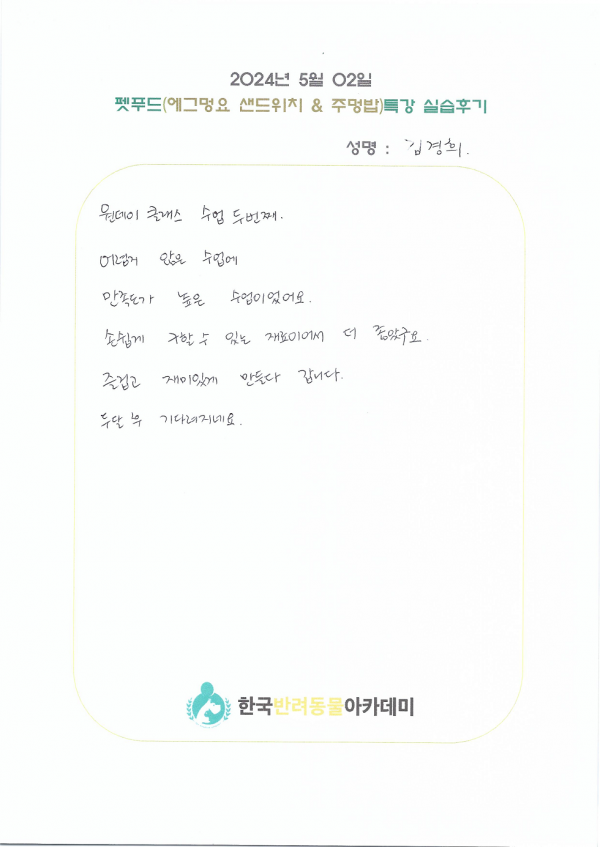 2024년 5월 02일
펫푸드(에그멍요 샌드위치 & 주멍밥)특강 실습후기
성명 : 김경희.
원데이 클래스 수업 두번째.
어렵게 않은 수업에
만족도가 높은 수업이었어요.
손쉽게 구할 수 있는 재료이어서 더 좋았구요.
즐겁고 재미있게 만들다 갑니다.
두달 후 기다려지네요.
한국반려동물아카데미